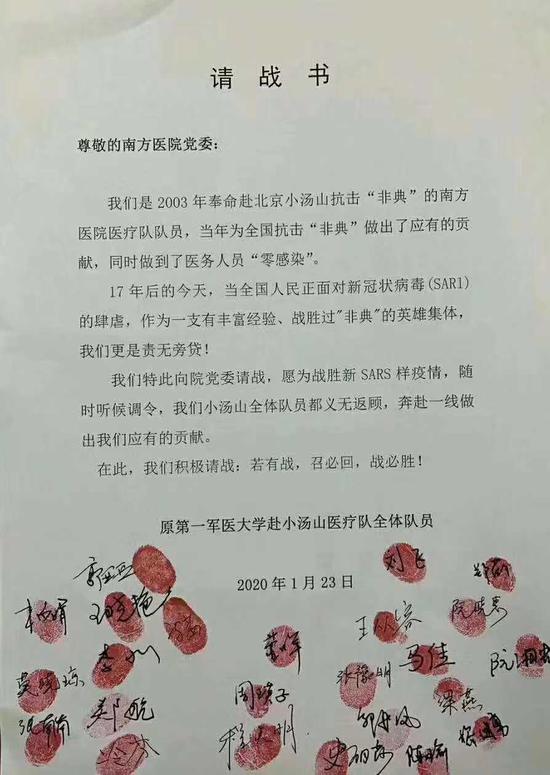 请战书
尊敬的南方医院党委：
我们是 2003 年奉命赴北京小汤山抗击“非典”的南方
医院医疗队队员，当年为全国抗击“非典”做出了应有的贡
献，同时做到了医务人员“零感染”。
17 年后的今天，当全国人民正面对新冠状病毒(SARI)
的肆虐，作为一支有丰富经验、战胜过"非典”的英雄集体，
我们更是责无旁贷！
我们特此向院党委请战，愿为战胜新 SARS 样疫情，随
时听候调令，我们小汤山全体队员都义无返顾，奔赴一线做
出我们应有的贡献。
在此，我们积极请战：若有战，召必回，战必胜！
原第一军医大学赴小汤山医疗队全体队员
2020 年 1 月 23 日
刘飞
郭亚兵
马佳